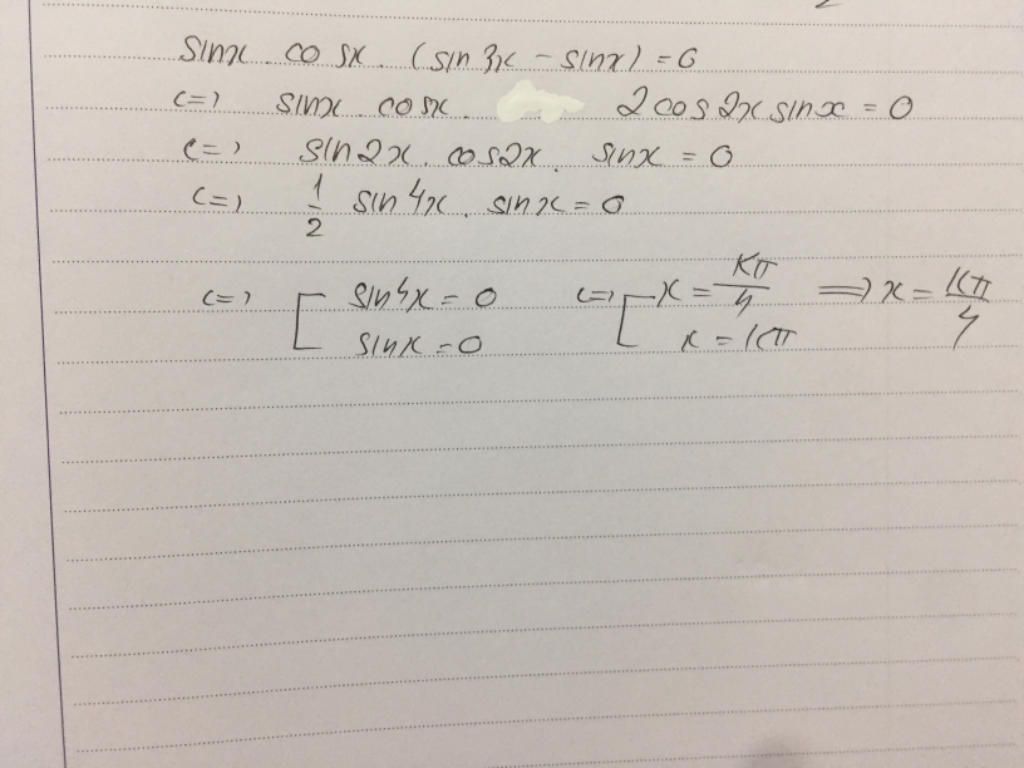 sinx . cosx . (sin3x - sinx) = 0
<=> sinx . cosx . 2cos2x sinx = 0
<=> sin2x . cos2x . sinx = 0
<=> 1/2 sin4x . sinx = 0
<=> [ sin4x = 0 <=> [ x = kπ/4 => x = kπ/4
sinx = 0 x = kπ